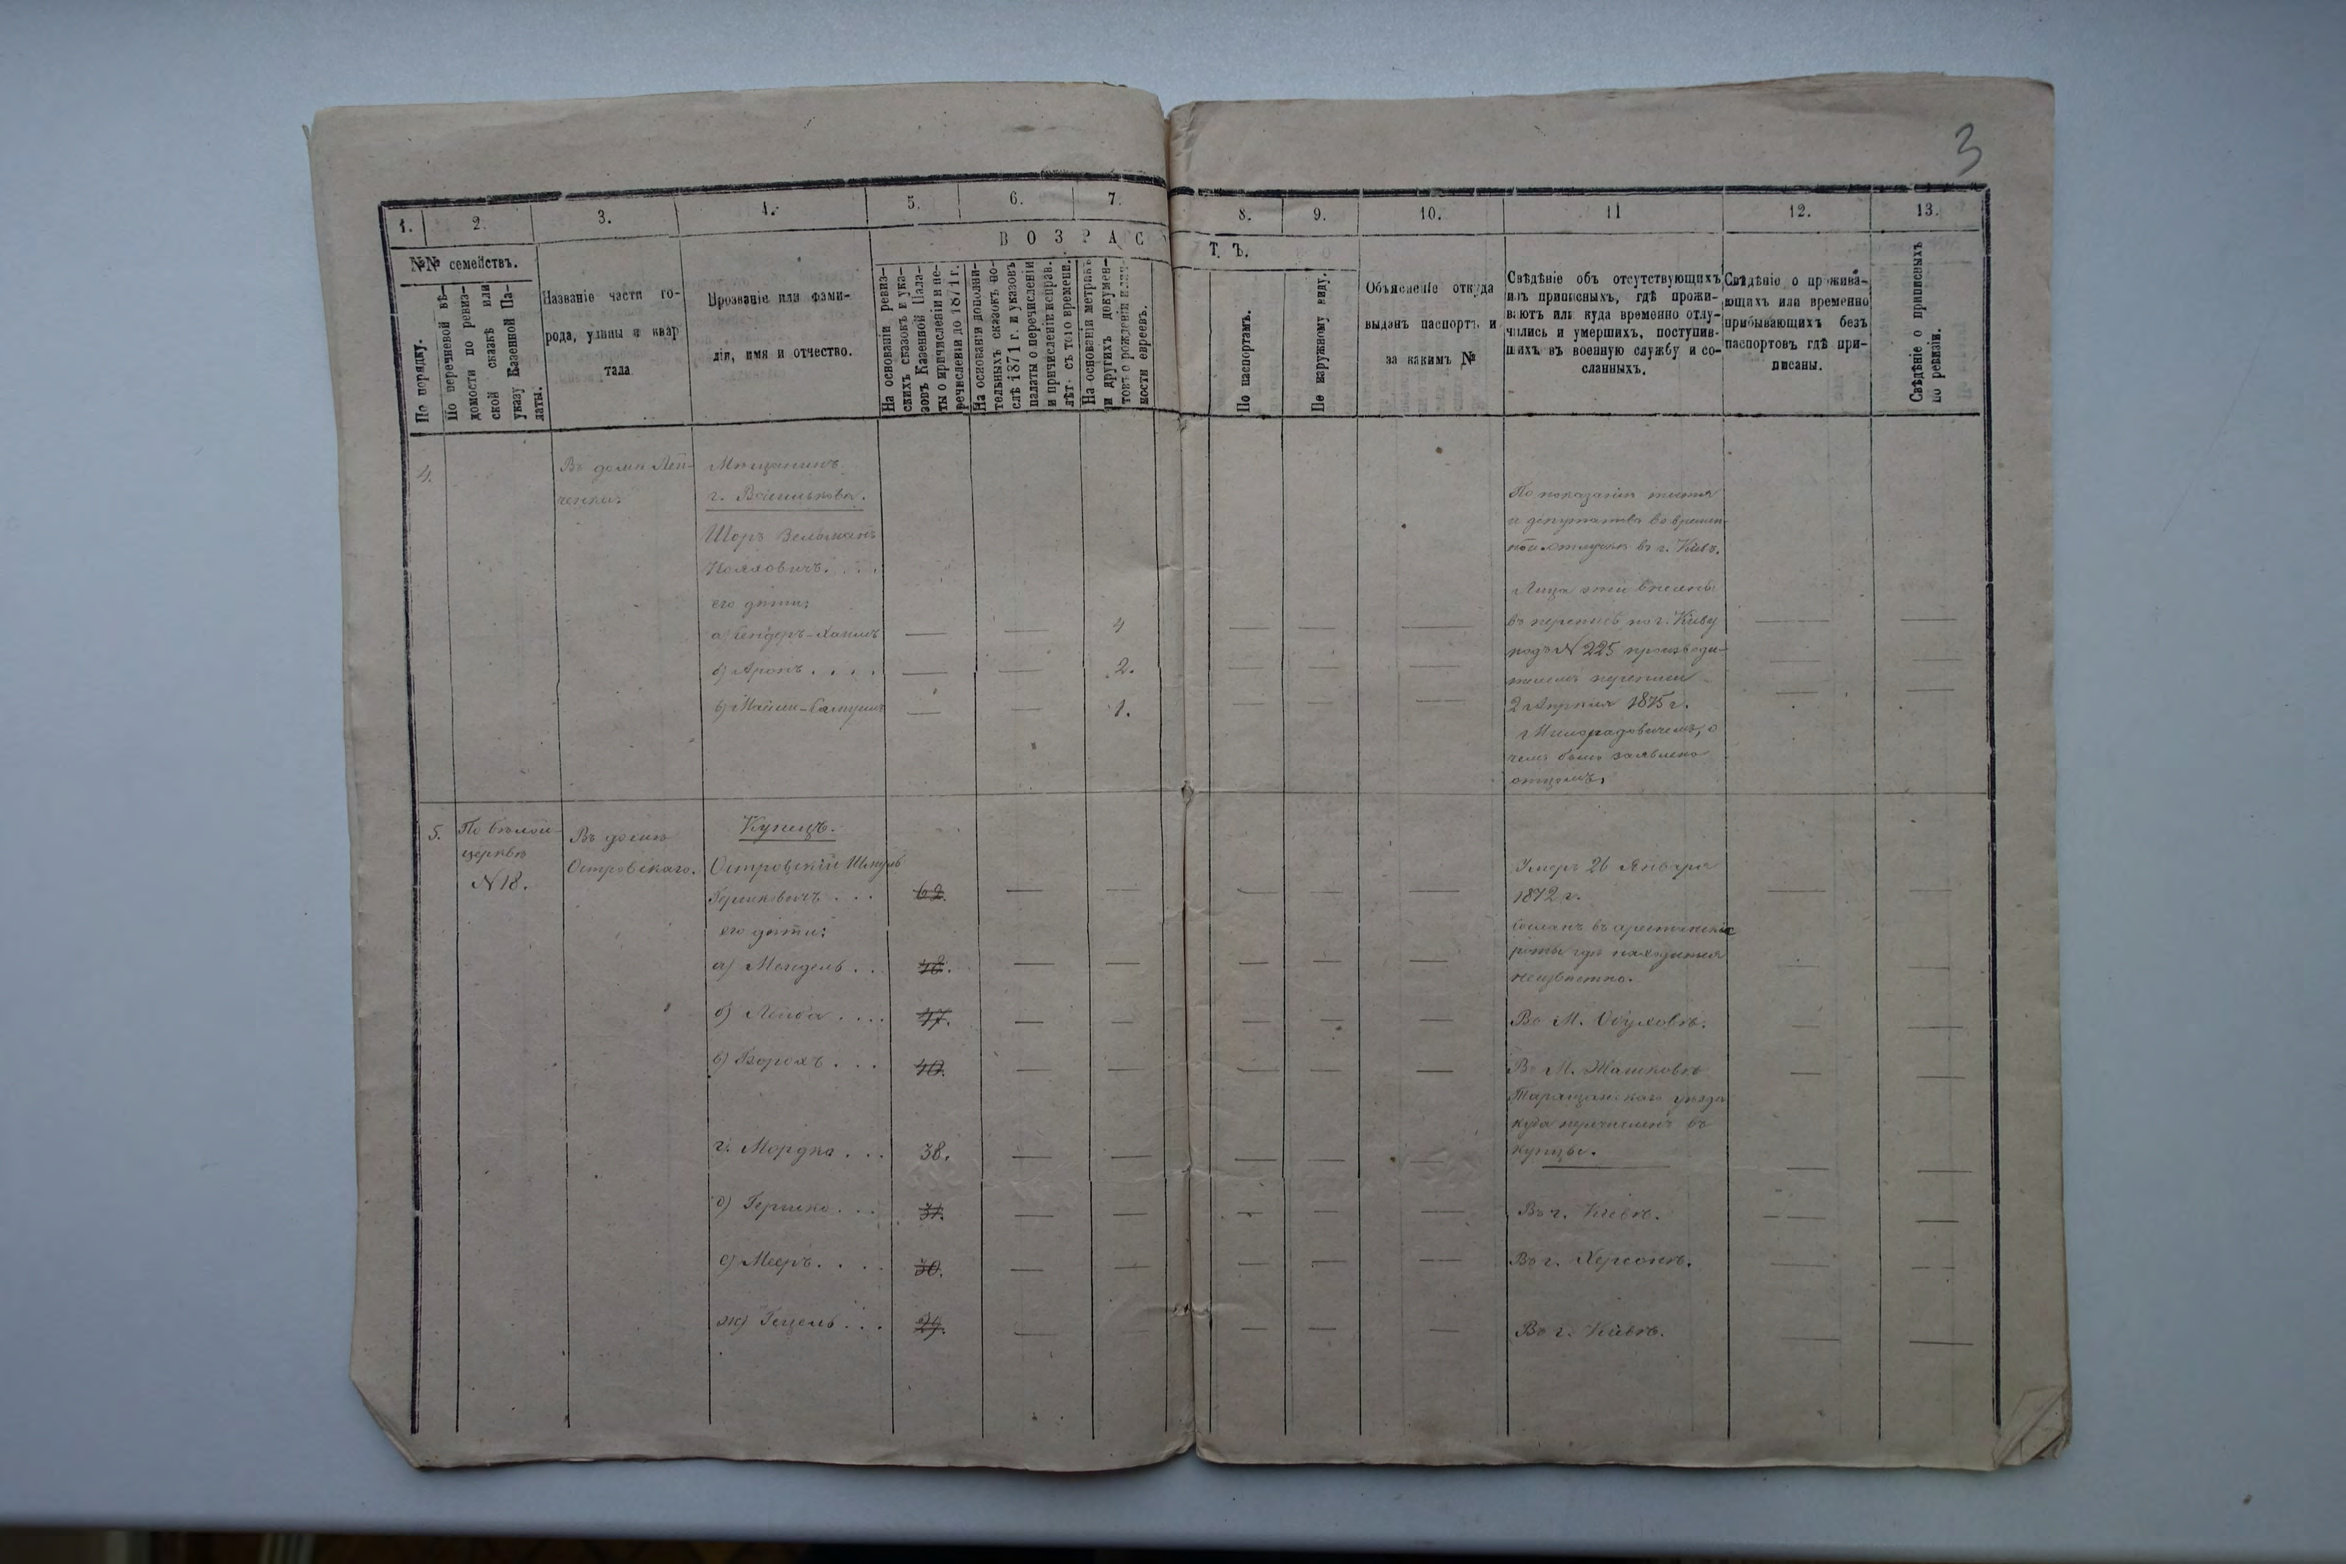 3
1.
2.
3.
4.
5.
6.
7.
8.
9.
10.
11
12.
13.
В О З Р А С
Т Ъ.
№№ семействъ.
По порядку.
По перечневой вѣ-
домости по ревиз-
ской сказкѣ или
указу Казенной Па-
латы.
Названіе части го-
рода, улицы и квар
тала
Прозваніе или фами-
лія, имя и отчество.
На основаніи ревиз-
скихъ сказокъ и ука-
зовъ Казенной Пала-
ты о причисленіи и пе-
речисленіи до 1871 г.
На основаніи дополни-
тельныхъ сказокъ по-
слѣ 1871 г. и указовъ
палаты о перечисленіи
и причисленіи исправ.
лѣт. съ того времени.
На основаніи метрикъ
и другихъ докумен-
товъ о рожденіи
ности евреевъ.
По паспортамъ.
По наружному виду.
Объясненіе откуда
выданъ паспортъ и
за какимъ №
Свѣдѣніе объ отсутствующихъ
изъ приписныхъ, гдѣ прожи-
ваютъ или куда временно отлу-
чились и умершихъ, поступив-
шихъ въ военную службу и со-
сланныхъ.
Свѣдѣніе о прожива-
ющихъ или временно
прибывающихъ безъ
паспортовъ гдѣ при-
писаны.
Свѣдѣніе о приписныхъ
по ревизіи.
4.
Въ домѣ Лей-
ченка.
Мѣщанинъ
г. Василькова.
Шоръ Зельманъ
его дѣти:
а)
4
б) Аронъ . . . .
2.
в)
1.
По показанію
и депутатовъ во времен-
ной отлучкѣ въ г. Кіевѣ.
Лица эти внесены
въ перепись по г. Кіеву
подъ № 225 производи-
телемъ переписи
2 Апрѣля 1875 г.
г. Милорадовичемъ, о
чемъ было заявлено
отцомъ.
5.
По бѣлой-
церквѣ
№ 18.
Въ домѣ
Островскаго.
Купецъ.
Островскій Шмуль
Гершковичъ . . .
62.
Умеръ 26 Января
1872 г.
его дѣти:
а) Мендель . .
48.
Сосланъ въ арестантскіе
роты гдѣ находится
неизвѣстно.
б) Лейба . . . .
47.
Въ М. Обуховѣ.
в) Борохъ . . .
40.
Въ М. Жашковѣ
Таращанскаго уѣзда
куда перечисленъ въ
купцы.
г. Мордко . . .
38.
д) Гершко . . .
31.
Въ г. Кіевѣ.
е) Мееръ . . . .
30.
Въ г. Херсонѣ.
ж) Гецель . . .
29.
Въ г. Кіевѣ.